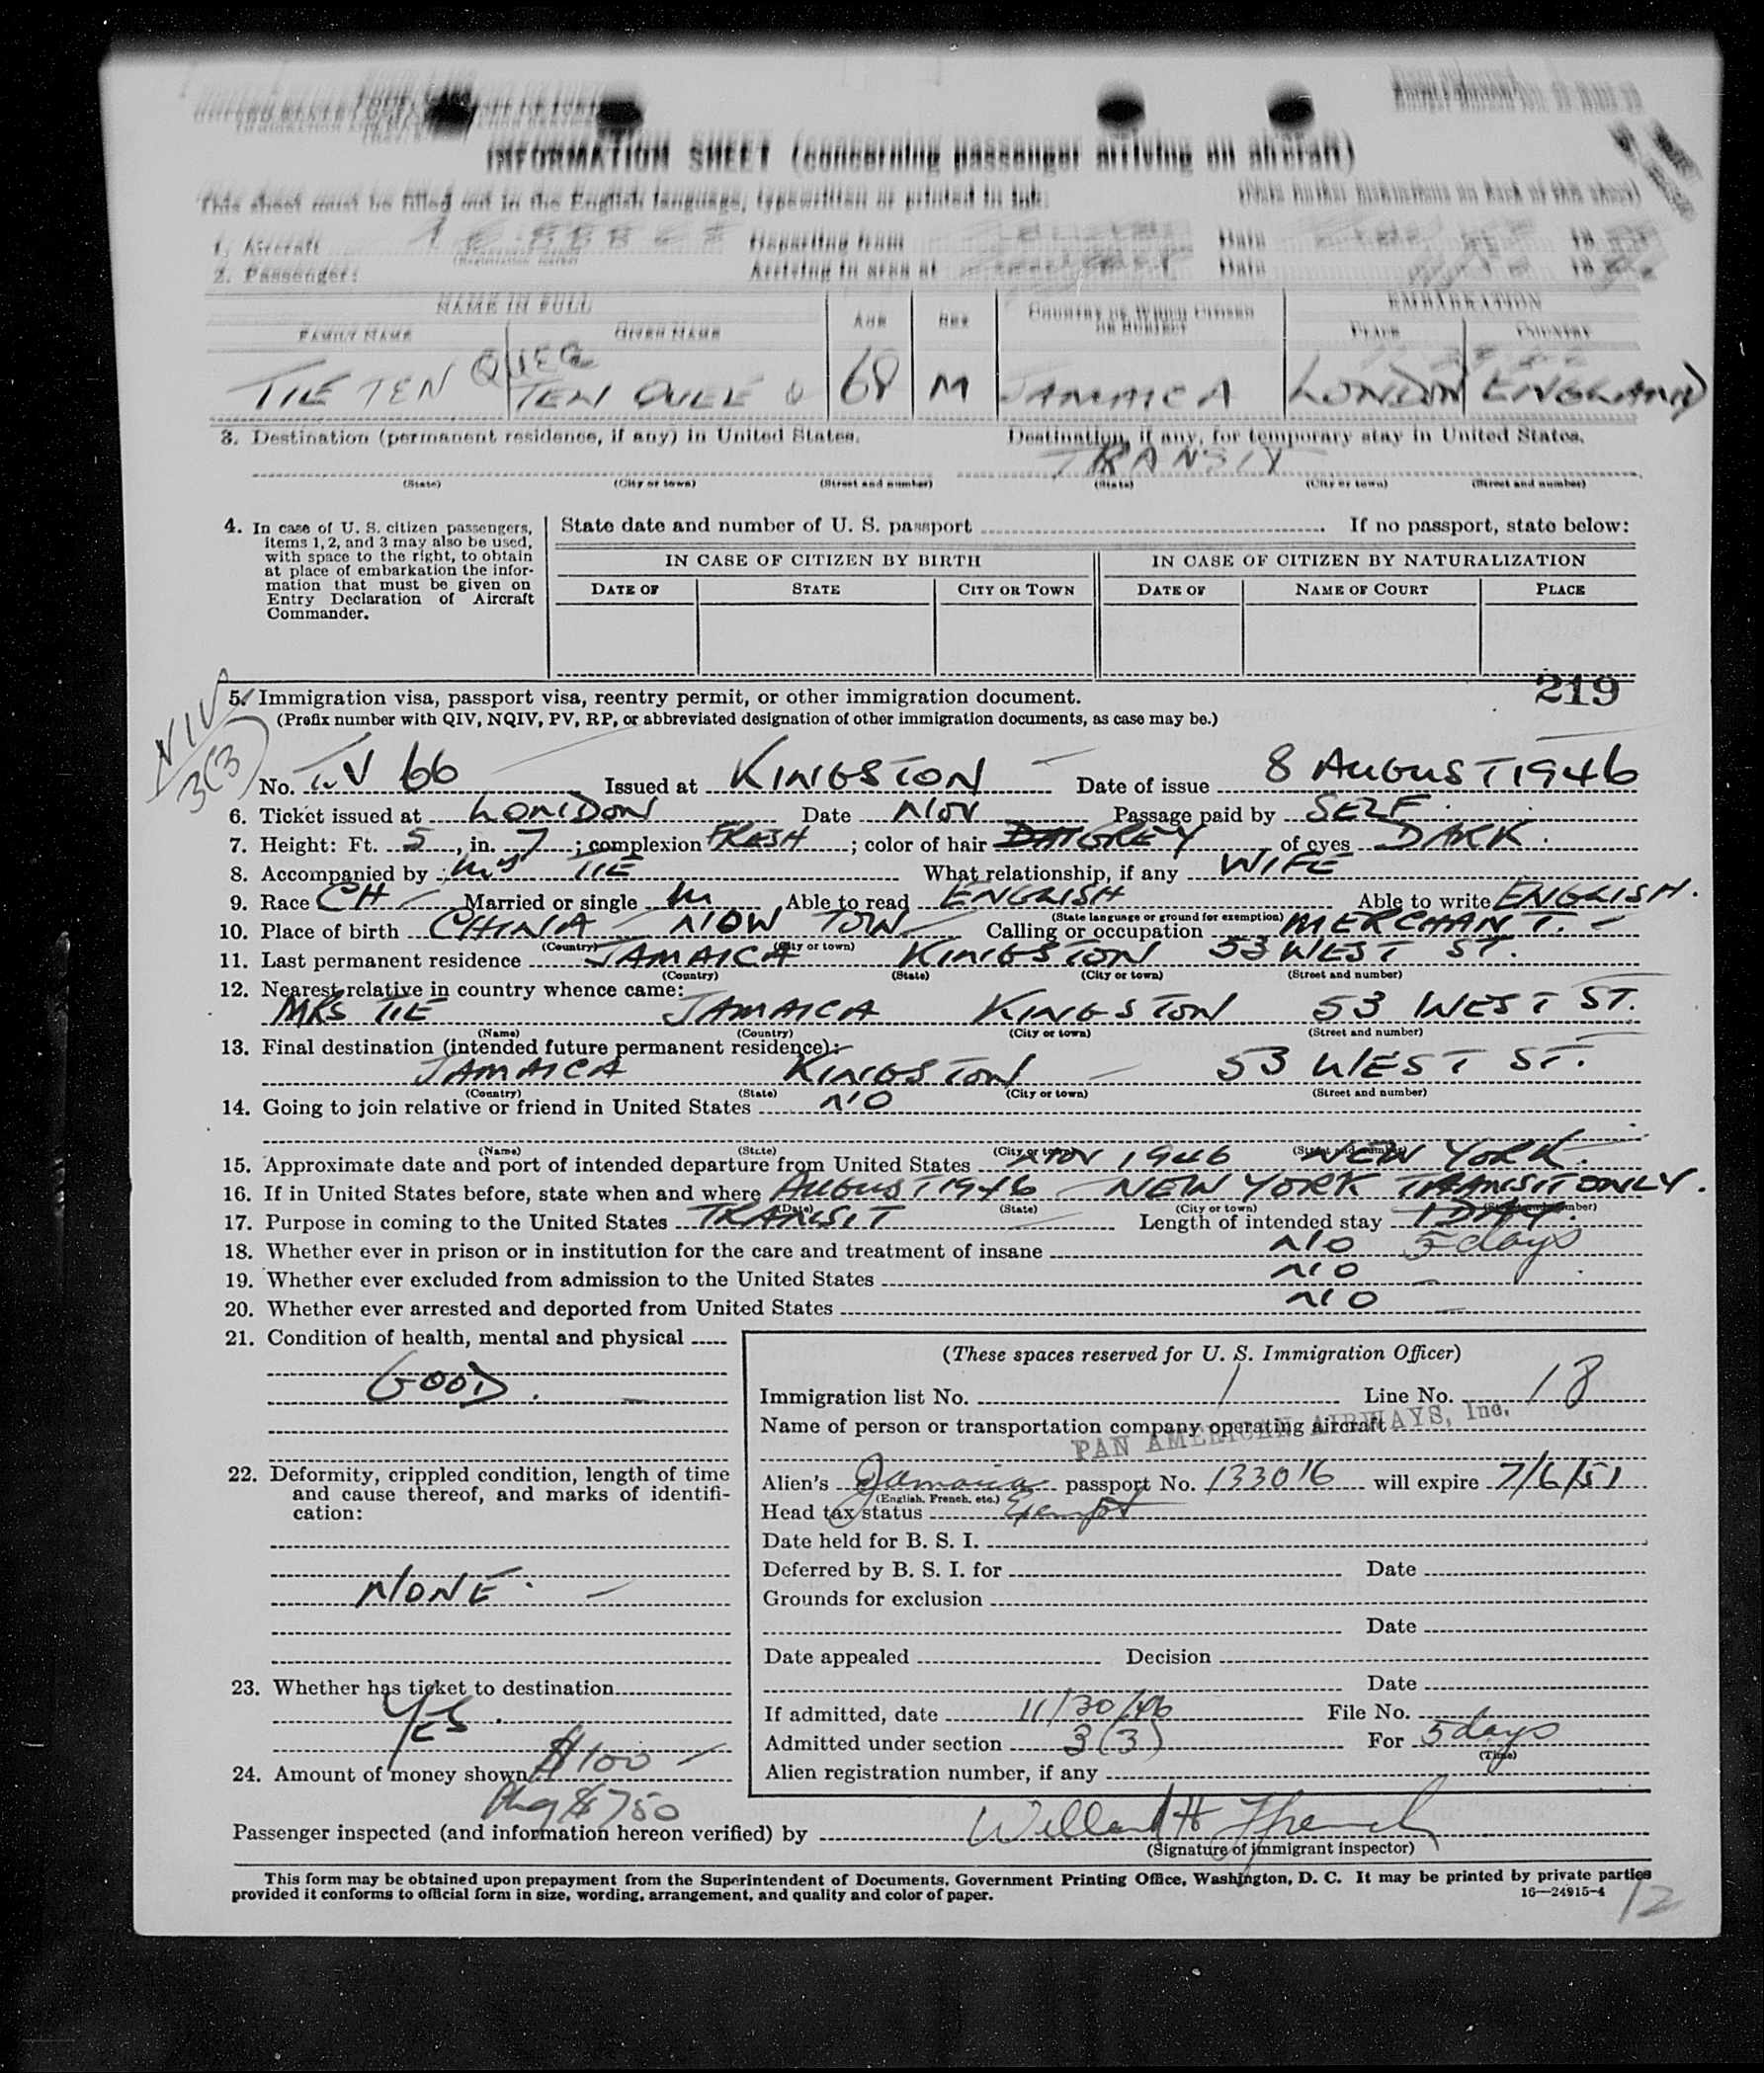 INFORMATION SHEET (concerning passenger arriving on aircraft)
This sheet must be filled out in the English language, typewritten or printed in ink.
1. Aircraft
(Registration marks)
Departing from
Date
2. Passenger:
Arriving in area at
Date
NAME IN FULL
AGE
SEX
COUNTRY OF WHICH CITIZEN OR SUBJECT
EMBARKATION
FAMILY NAME
GIVEN NAME
PLACE
COUNTRY
TIE TEN
68
M
JAMAICA
LONDON
ENGLAND
3. Destination (permanent residence, if any) in United States.
Destination, if any, for temporary stay in United States.
TRANSIT
(State) (City or town) (Street and number) (State) (City or town) (Street and number)
4. In case of U. S. citizen passengers, items 1, 2, and 3 may also be used, with space to the right, to obtain at place of embarkation the information that must be given on Entry Declaration of Aircraft Commander.
State date and number of U. S. passport . If no passport, state below:
IN CASE OF CITIZEN BY BIRTH
IN CASE OF CITIZEN BY NATURALIZATION
DATE OF
STATE
CITY OR TOWN
DATE OF
NAME OF COURT
PLACE
219
NIV
3(3)
5. Immigration visa, passport visa, reentry permit, or other immigration document.
(Prefix number with QIV, NQIV, PV, RP, or abbreviated designation of other immigration documents, as case may be.)
No. V 66 Issued at KINGSTON Date of issue 8 AUGUST 1946
6. Ticket issued at LONDON Date NOV Passage paid by SELF.
7. Height: Ft. 5, in. 7; complexion FRESH; color of hair GREY of eyes DARK.
8. Accompanied by Mrs TIE What relationship, if any WIFE
9. Race CH Married or single M Able to read ENGLISH Able to write ENGLISH.
(State language or ground for exemption)
10. Place of birth CHINA NIOW TOW Calling or occupation MERCHANT.
(Country) (City or town)
11. Last permanent residence JAMAICA KINGSTON 53 WEST ST.
(Country) (State) (City or town) (Street and number)
12. Nearest relative in country whence came:
MRS TIE JAMAICA KINGSTON 53 WEST ST.
(Name) (Country) (City or town) (Street and number)
13. Final destination (intended future permanent residence):
JAMAICA KINGSTON 53 WEST ST.
(Country) (State) (City or town) (Street and number)
14. Going to join relative or friend in United States NO
(Name) (State) (City or town) (Street and number)
15. Approximate date and port of intended departure from United States NOV 1946 NEW YORK.
16. If in United States before, state when and where AUGUST 1946 NEW YORK TRANSIT ONLY.
(Date) (State) (City or town) (Street and number)
17. Purpose in coming to the United States TRANSIT Length of intended stay 1 DAY.
5 days
18. Whether ever in prison or in institution for the care and treatment of insane NO
19. Whether ever excluded from admission to the United States NO
20. Whether ever arrested and deported from United States NO
21. Condition of health, mental and physical
GOOD.
22. Deformity, crippled condition, length of time and cause thereof, and marks of identification:
NONE.
23. Whether has ticket to destination
YES.
24. Amount of money shown $100
$750
(These spaces reserved for U. S. Immigration Officer)
Immigration list No. 1 Line No. 18
Name of person or transportation company operating aircraft
PAN AMERICAN AIRWAYS, Inc.
Alien's Jamaica passport No. 133016 will expire 7/6/51
(English, French, etc.)
Head tax status Exempt
Date held for B. S. I.
Deferred by B. S. I. for Date
Grounds for exclusion
Date
Date appealed Decision
Date
If admitted, date 11/30/46 File No.
Admitted under section 3(3) For 5 days
(Time)
Alien registration number, if any
Passenger inspected (and information hereon verified) by Willard H
(Signature of immigrant inspector)
This form may be obtained upon prepayment from the Superintendent of Documents, Government Printing Office, Washington, D. C. It may be printed by private parties
provided it conforms to official form in size, wording, arrangement, and quality and color of paper.
16—24915-4
12